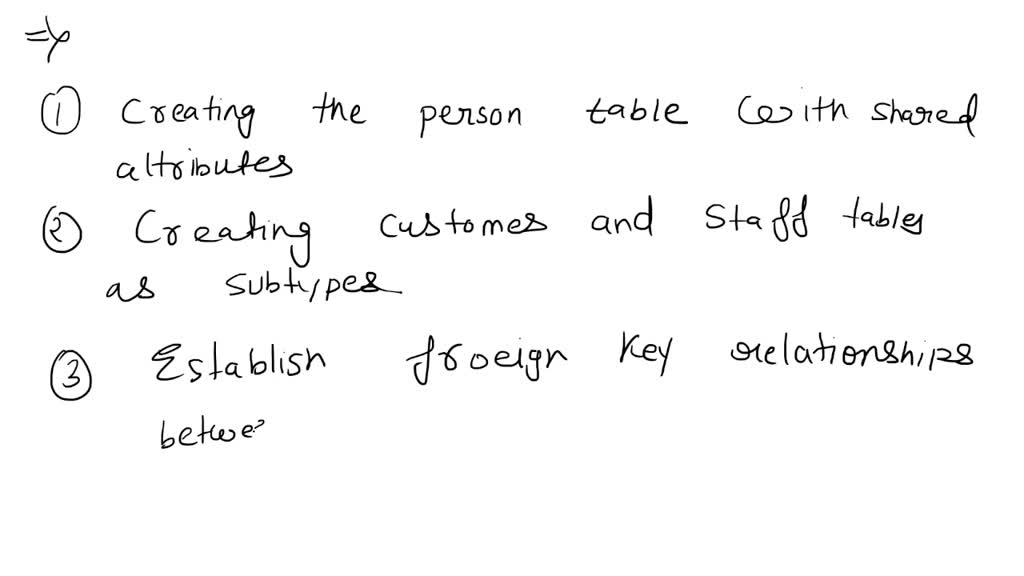 ⇒
① Creating the person table with shared
attributes
② Creating customes and Staff tables
as subtypes
③ Establish froeign key relationships
betwe